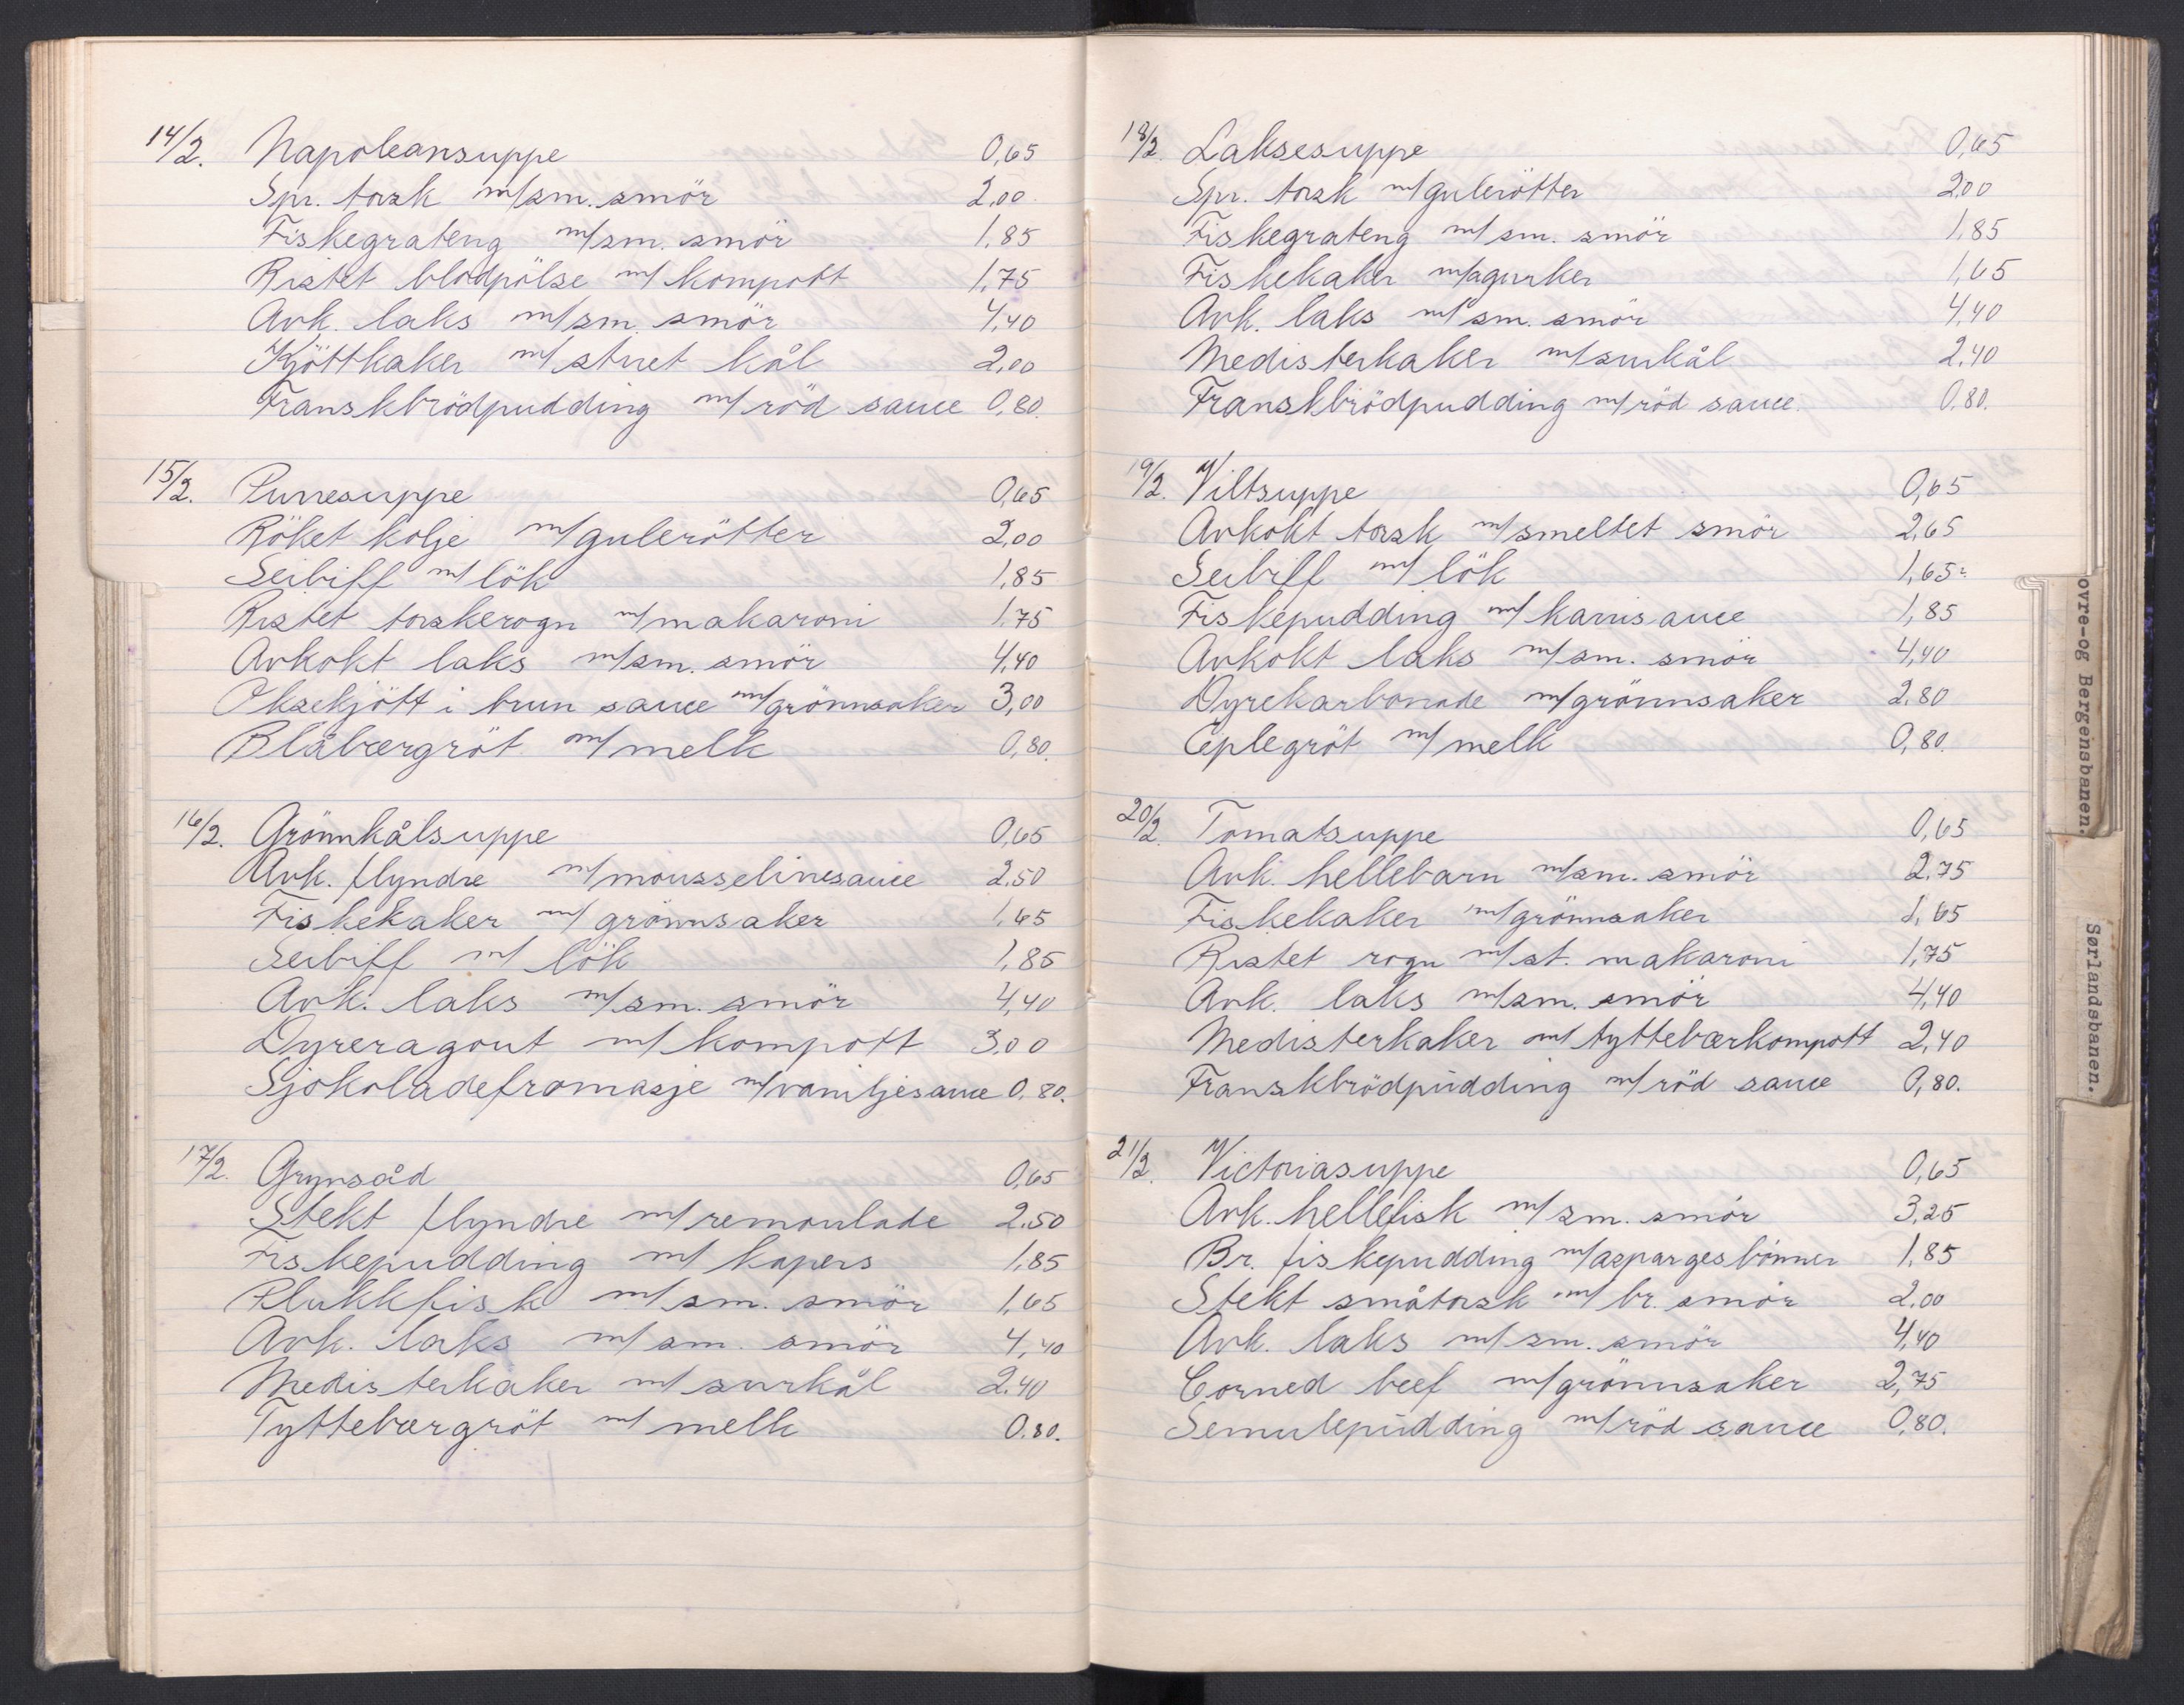 14/2. Napoleansuppe 0,65
Spr. torsk m/sm. smör 2,00
Fiskegrateng m/sm. smör 1,85
Ristet blodpölse m/ kompott 1,75
Avk. laks m/sm. smör 4,40
Kjöttkaker m/ stuet kål 2,00
Franskbrödpudding m/ röd sauce 0,80.
15/2. Purresuppe 0,65
Röket kolje m/gulerötter 2,00
Seibiff m/ lök 1,85
Ristet torskerogn m/makaroni 1,75
Avkokt laks m/sm. smör 4,40
Oksekjött i brun sauce m/grönnsaker 3,00
Blåbærgröt m/ melk 0,80.
16/2. Grönnkålsuppe 0,65
Avk. flyndre m/mousselinesauce 2,50
Fiskekaker m/ grönnsaker 1,65
Seibiff m/ lök 1,85
Avk. laks m/sm. smör 4,40
Dyreragout m/ kompott 3,00
Sjokoladefromasje m/vaniljesauce 0.80.
17/2. Grynsåd 0,65
Stekt flyndre m/remoulade 2.50
Fiskepudding m/ kapers 1,85
Plukkfisk m/sm. smör 1,65
Avk. laks m/sm. smör 4,40
Medisterkaker m/ surkål 2.40
Tyttebærgröt m/ melk 0.80.
18/2. Laksesuppe 0,65
Spr. torsk m/gulerötter 2,00
Fiskegrateng m/ sm. smör 1,85
Fiskekaker m/agurker 1,65
Avk. laks m/ sm. smör 4,40
Medisterkaker m/surkål 2,40
Franskbrödpudding m/röd sauce. 0.80.
19/2. Viltsuppe 0,65
Avkokt torsk m/smeltet smör 2,65
Seibiff m/ lök 1,65
Fiskepudding m/ karrisauce 1,85
Avkokt laks m/ sm. smör 4,40
Dyrekarbonade m/grönnsaker 2,80
Eplegröt m/ melk 0,80.
20/2. Tomatsuppe 0,65
Avk. hellebarn m/sm. smör 2,75
Fiskekaker m/grönnsaker 1,65
Ristet rogn m/st. makaroni 1,75
Avk. laks m/sm. smör 4,40
Medisterkaker m/ tyttebærkompott 2,40
Franskbrödpudding m/röd sauce 0,80.
21/2. Victoriasuppe 0,65
Avk. hellefisk m/ sm. smör 3,25
Br. fiskepudding m/aspargesbönner 1,85
Stekt småtorsk m/ br. smör 2,00
Avk. laks m/ sm. smör 4,40
Corned beef m/grönnsaker 2,75
Semulepudding m/röd sauce 0,80.
ovre-og Bergensbanen.
Sørlandsbanen.